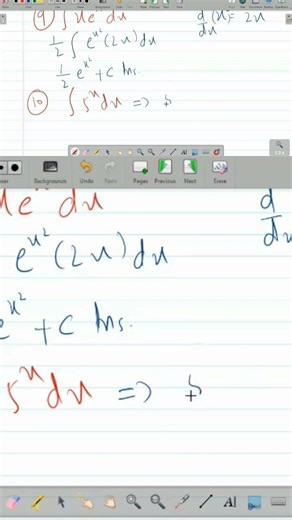 9) ∫ xe^x² dx d/dx (x²) = 2x
1/2 ∫ e^x² (2x) dx
1/2 e^x² + c Ans.
10) ∫ 5^x dx =>
Eraser Backgrounds Undo Redo Pages Previous Next Erase
xe^x² dx d/dx
e^x² (2x) dx
e^x² + c Ans.
5^x dx =>